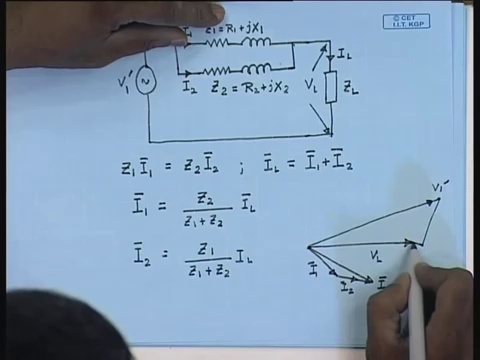 © CET
I.I.T. KGP
I₁ Z₁ = R₁ + jX₁
I_L
V₁′
I₂ Z₂ = R₂ + jX₂
V_L
Z_L
Z₁ Ī₁ = Z₂ Ī₂ ; Ī_L = Ī₁ + Ī₂
Ī₁ = Z₂ / (Z₁ + Z₂) Ī_L
Ī₂ = Z₁ / (Z₁ + Z₂) I_L
V₁′
V_L
Ī₁
I₂
Ī